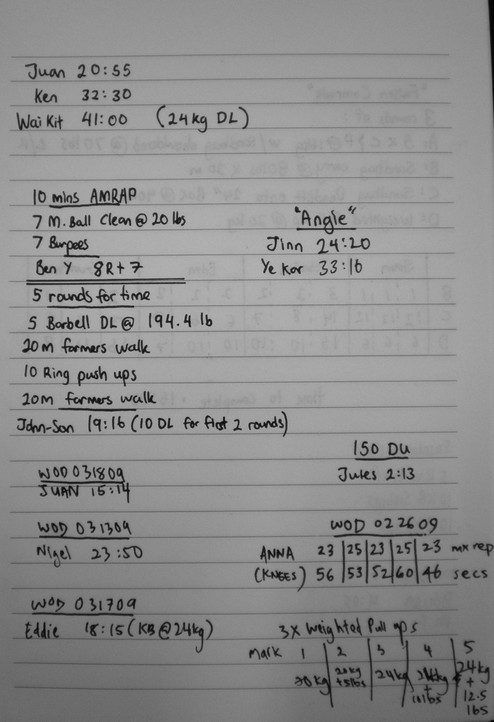 Juan 20:55
Ken 32:30
Wai Kit 41:00 (24kg DL)
10 mins AMRAP
7 M. Ball Clean @ 20 lbs
7 Burpees
Ben Y 8R + 7
"Angie"
Jinn 24:20
Ye Kar 33:16
5 rounds for time
5 Barbell DL @ 194.4 lb
20m farmers walk
10 Ring push ups
20m farmers walk
John-Son 19:16 (10 DL for first 2 rounds)
150 DU
Jules 2:13
WOD 031809
JUAN 15:14
WOD 031309
Nigel 23:50
WOD 022609
ANNA 23 | 25 | 23 | 25 | 23 mx rep
(KNEES) 56 | 53 | 52 | 60 | 46 secs
WOD 031709
Eddie 18:15 (KB @ 24kg)
3 X Weighted Pull ups
Mark 1 2 3 4 5
20kg | 20kg +5lbs | 24kg | 24kg + 10lbs | 24kg + 12.5 lbs